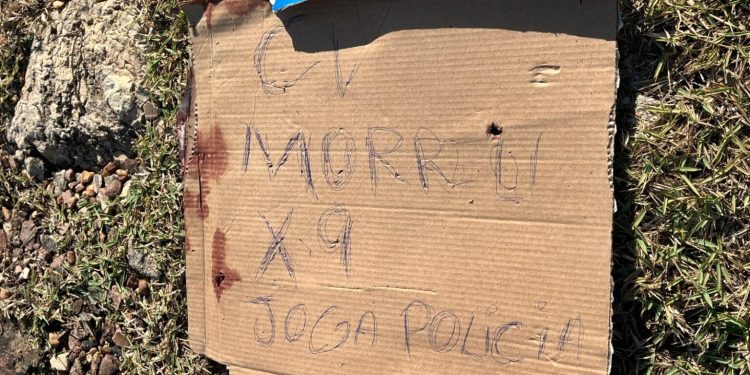 CV
MORREU
X.9
JOGA POLICIA